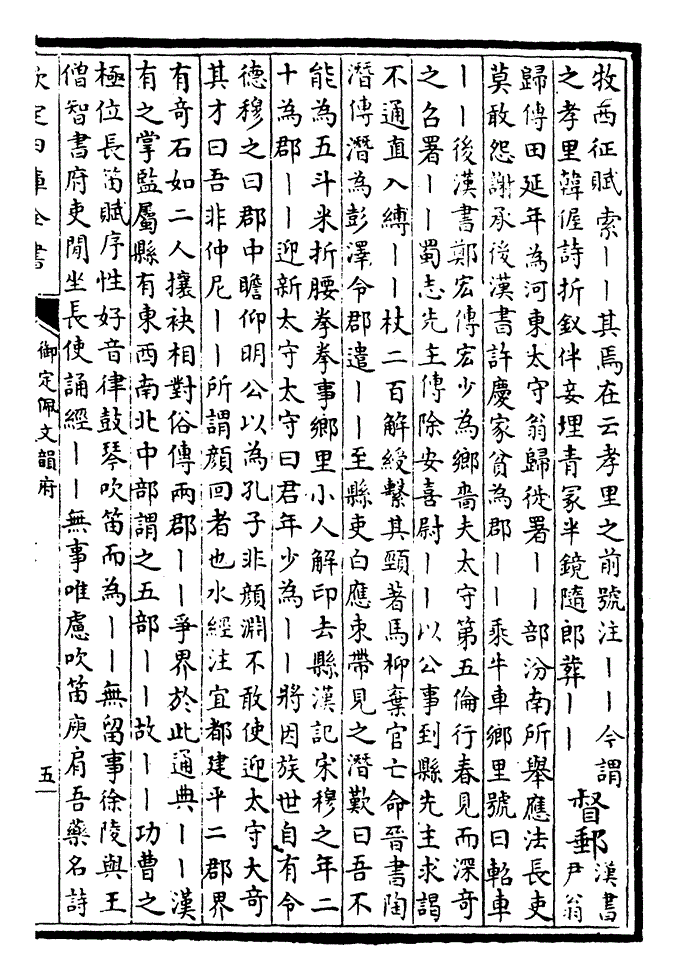 牧西征賦索丨丨其焉在云孝里之前號注丨丨今謂
之孝里韓偓詩折釵伴妾埋青冢半鏡隨郎葬丨丨
督郵
漢書
尹翁
歸傳田延年為河東太守翁歸徙署丨丨部汾南所舉應法長吏
莫敢怨謝承後漢書許慶家貧為郡丨丨乘牛車鄉里號曰軺車
丨丨後漢書鄭宏傳宏少為鄉嗇夫太守第五倫行春見而深奇
之召署丨丨蜀志先主傳除安喜尉丨丨以公事到縣先主求謁
不通直入縛丨丨杖二百解綬繫其頸著馬柳棄官亡命晉書陶
潛傳潛為彭澤令郡遣丨丨至縣吏白應束帶見之潛歎曰吾不
能為五斗米折腰拳拳事鄉里小人解印去縣漢記宋穆之年二
十為郡丨丨迎新太守太守曰君年少為丨丨將因族世自有令
德穆之曰郡中瞻仰明公以為孔子非顔淵不敢使迎太守大奇
其才曰吾非仲尼丨丨所謂顔回者也水經注宜都建平二郡界
有奇石如二人攘袂相對俗傳兩郡丨丨爭界於此通典丨丨漢
有之掌監屬縣有東西南北中部謂之五部丨丨故丨丨功曹之
極位長笛賦序性好音律鼓琴吹笛而為丨丨無留事徐陵與王
僧智書府吏閒坐長使誦經丨丨無事唯慮吹笛庾肩吾藥名詩
欽定四庫全書
御定佩文韻府
五